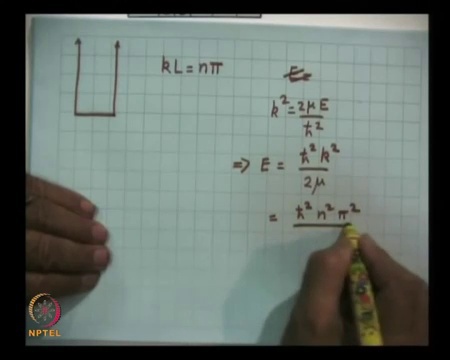 kL = nπ
E
k² = 2μE / ħ²
⇒ E = ħ² k² / 2μ
= ħ² n² π²
NPTEL